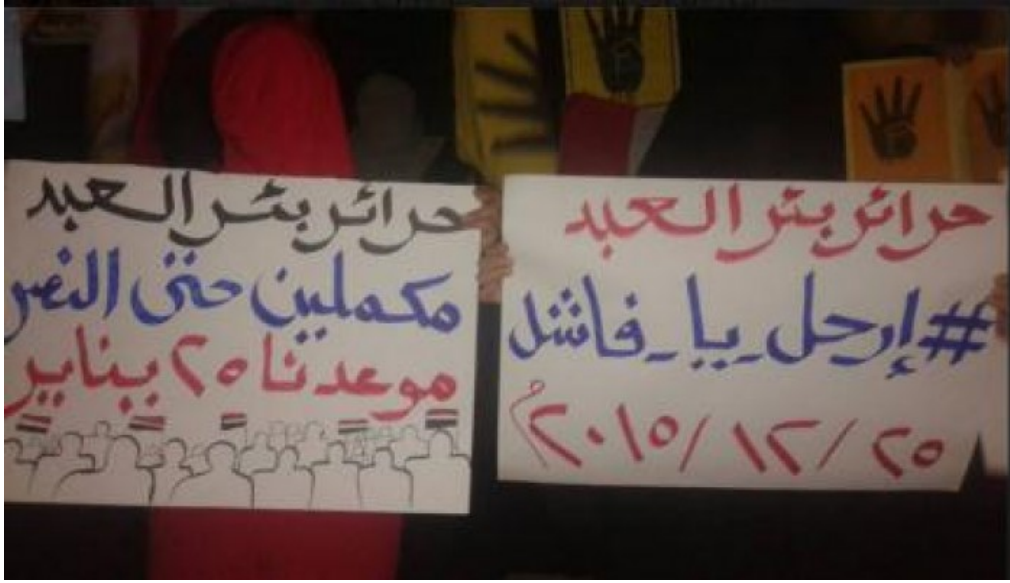 حرائر بئر العبد
#إرحل_يا_فاشل
٢٥/١٢/٢٠١٥م
حرائر بئر العبد
مكملين حتى النصر
موعدنا ٢٥ يناير